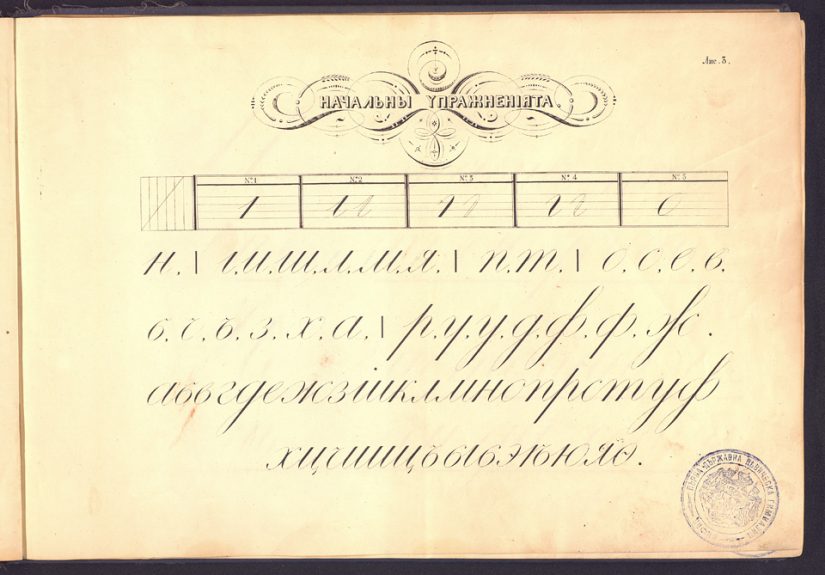 Лис. 3.
НАЧАЛЬНЫ УПРАЖНЕНІЯТА.
№1 №2 №3 №4 №5
н. | і.и.ш.л.м.я. | п.т. | о.с.е.в.
б.ч.ъ.з.х.а. | р.у.у.д.ф.ф.ж.
абвгдежзіиклмнопрстуф
хцчшщъыьэѣюяѳ.
ДЪРЖАВНА